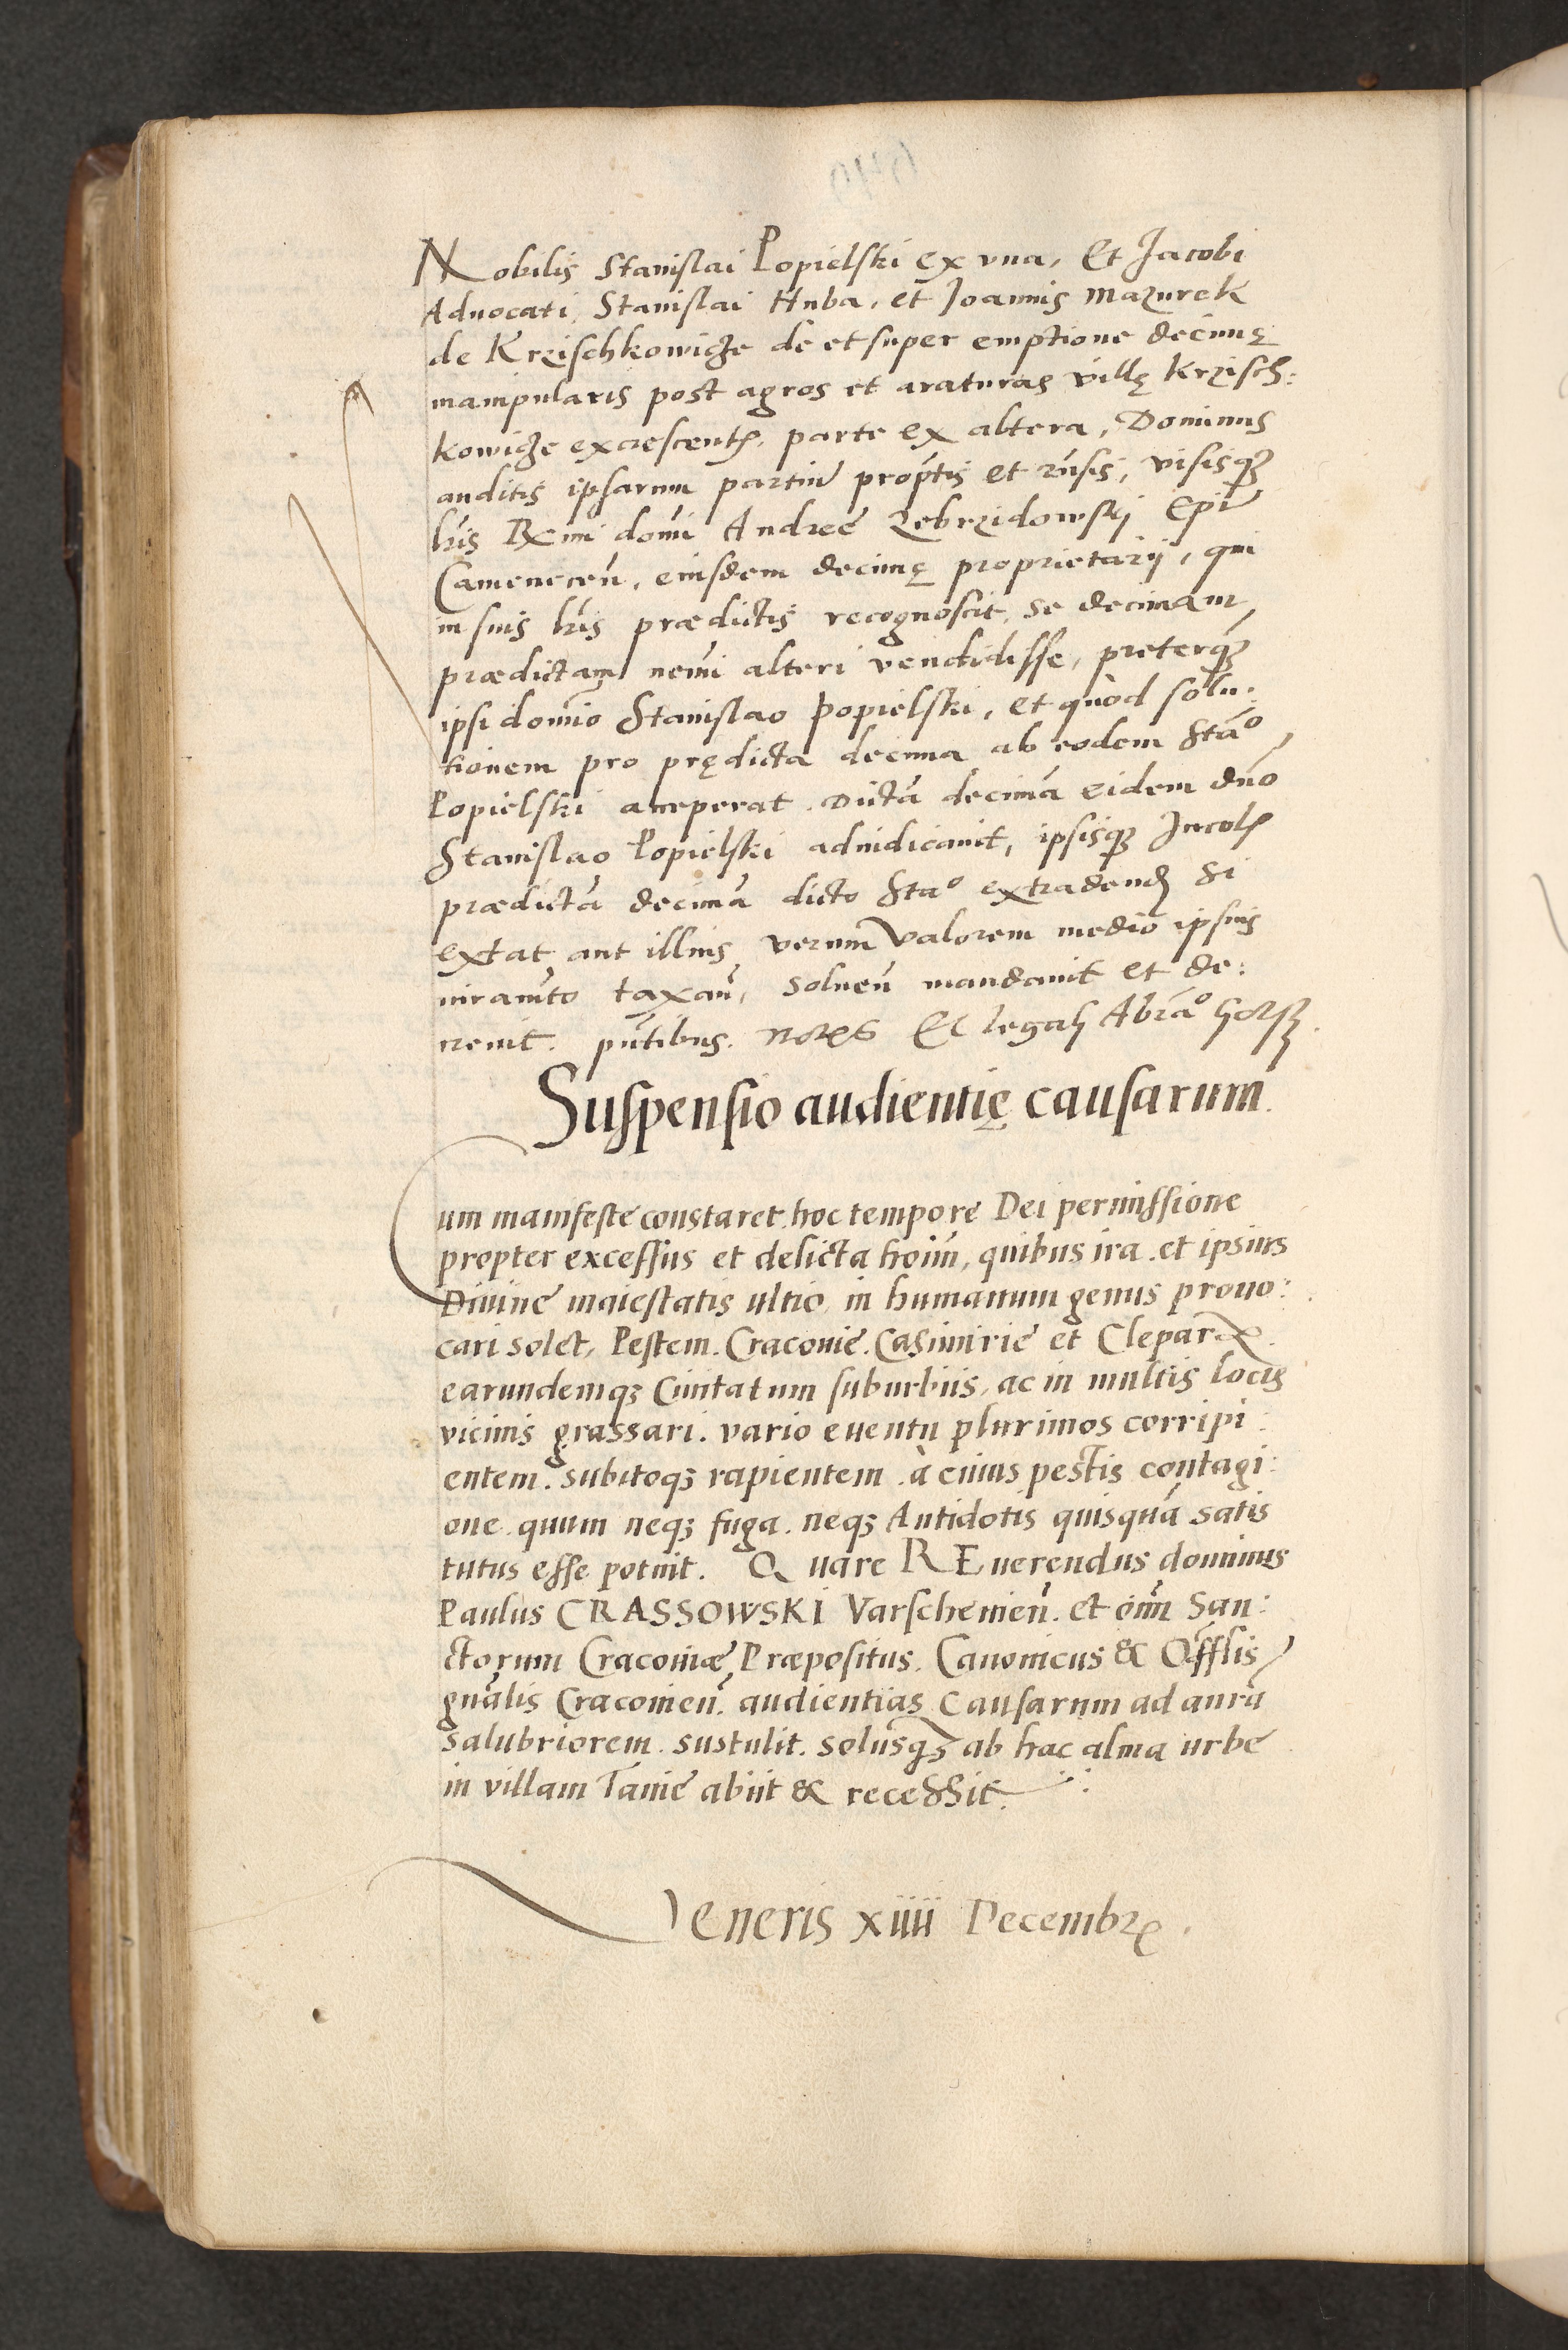 Nobilis Stanislai Popielski ex vna, Et Jacobi
Aduocati, Stanislai Huba, et Joannis Mazurek
de Krzischkowicze de et super emptione decimę
manipularis post agros et araturas villę Krzisch:
kowicze excrescentis, parte ex altera, Dominus
auditis ipsarum partiū propōtis et rn̄sis, visisqȝ
lr̄is Rx̄mi domī Andreę Zebrzidowskÿ Ep̄i
Camenecen̄. eiusdem decimę proprietarij, qui
in suis lr̄is prædictis recognoscit, se decimam
prædictam nemī alteri vendidisse, preterq̄ȝ
ipsi domīo Stanislao Popielski, et quòd solu:
tionem pro prędicta decima ab eodem Sta͂º
Popielski acceperat. Dictā decimā eidem dn̄o
Stanislao Popielski adiudicauit, ipsisqȝ Incolis
prædictā decimā dicto Staº extradendā si
extat aut illius verum valorem medio ipsius
iuramēto taxan̄. soluen̄ mandauit et de:
creuit. pn̄tibus.
Suspensio audientię causarum.
Cum manifeste constaret, hoc tempore Dei permissione
propter excessus et delicta hoim̄, quibus ira et ipsius
Diuinę maiestatis ultio, in humanum genus prouo:
cari solet, Pestem. Cracouię. Casimirię et Cleparʒ
earundemqȝ Ciuitatum suburbiis, ac in multis locis
vicinis grassari. vario euentu plurimos corripi:
entem. subitoqȝ rapientem. à cuius pestis contagi:
one. quum neqȝ fuga. neqȝ Antidotis quisquā satis
tutus esse potuit. Quare REuerendus dominus
Paulus CRASSOWSKI Varscheuien̄. et om̄i San:
ctorum Cracouiæ Præpositus. Canonicus & Offlis
gn̄alis Cracouien̄. audientias Causarum ad aurā
salubriorem. sustulit. solusqȝ ab hac alma urbe
in villam Tanię abiit & recessit.
Veneris xiiii Decembrȝ.